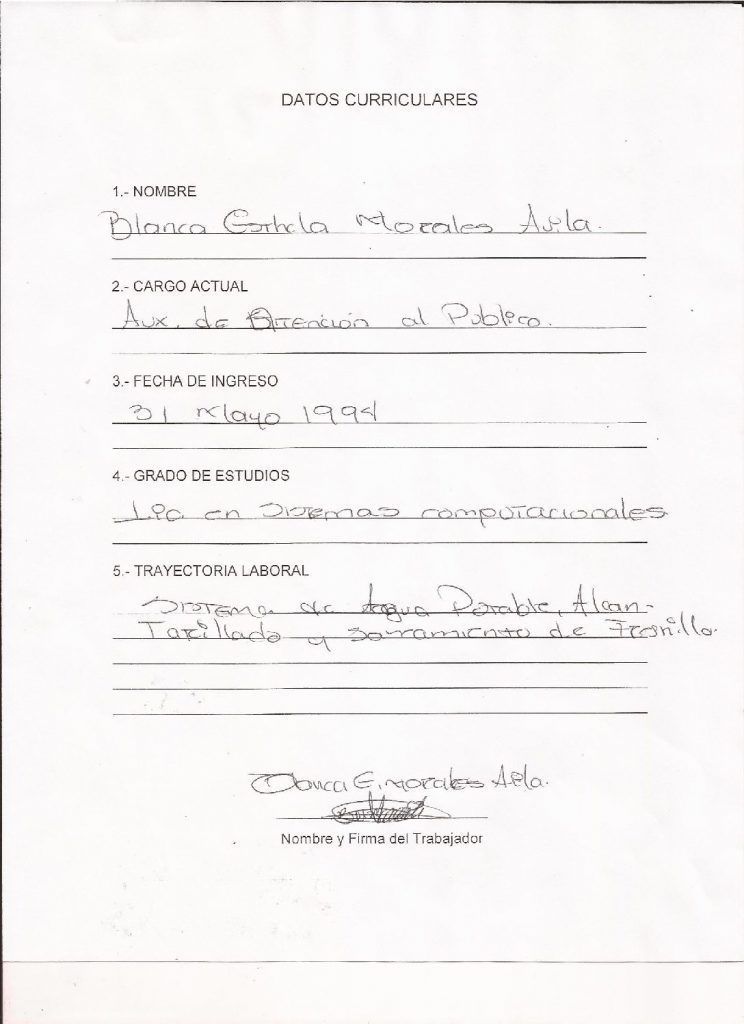 DATOS CURRICULARES
1.- NOMBRE
Blanca Esthela Morales Avila.
2.- CARGO ACTUAL
Aux. de Atención al Publico.
3.- FECHA DE INGRESO
31 Mayo 1994
4.- GRADO DE ESTUDIOS
Lic en Sistemas computacionales
5.- TRAYECTORIA LABORAL
Sistema de Agua Potable, Alcan-
Tarillado y de Fresnillo.
Blanca E. Morales Avila.
Nombre y Firma del Trabajador